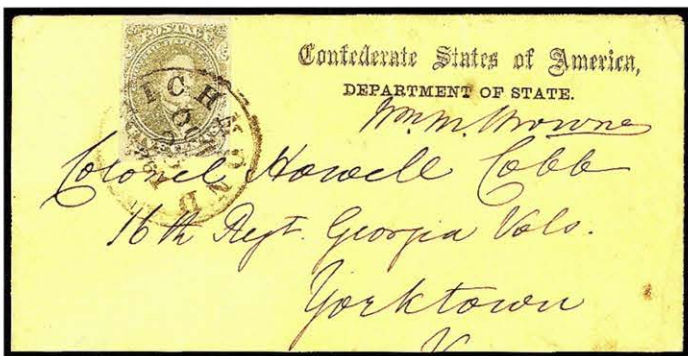 POSTAGE
Confederate States of America,
DEPARTMENT OF STATE.
Wm. M. Browne
Colonel Howell Cobb
16th Regt. Georgia Vols.
Yorktown